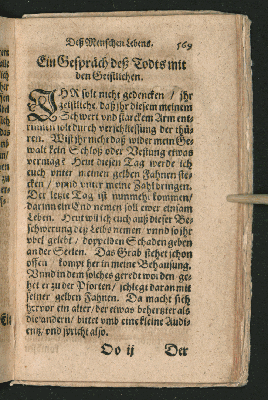 Deß Menschen Lebens. 569
Ein Gespräch deß Todts mit
den Geistlichen.
IHR solt nicht gedencken / jhr
Geistliche, daß jhr diesem meinem
Schwert vnd starckem Arm ent-
rinnen solt durch verschliessung der thü-
ren. Wist jhr nicht daß wider mein Ge-
walt kein Schloß oder Vestung etwas
vermag? Heut diesen Tag werde ich
euch vnter meinen gelben Fahnen ste-
cken / vnnd vnter meine Zahl bringen.
Der letzte Tag ist nunmehr kommen /
darinn ein End nemen soll ewer einsam
Leben. Heut wil ich euch auß dieser Be-
schwerung deß Leibs nemen vnnd so jhr
vbel gelebt / doppelden Schaden geben
an der Seelen. Das Grab stehet schon
offen / kompt her in meine Behausung.
Vnnd in dem solches geredt worden ge-
het er zu der Pforten / schlegt daran mit
seiner gelben Fahnen. Da macht sich
hervor ein alter / der etwas behertzter als
die andern / bittet vmb eine kleine Audi-
entz, vnd spricht also.
Oo ij Der